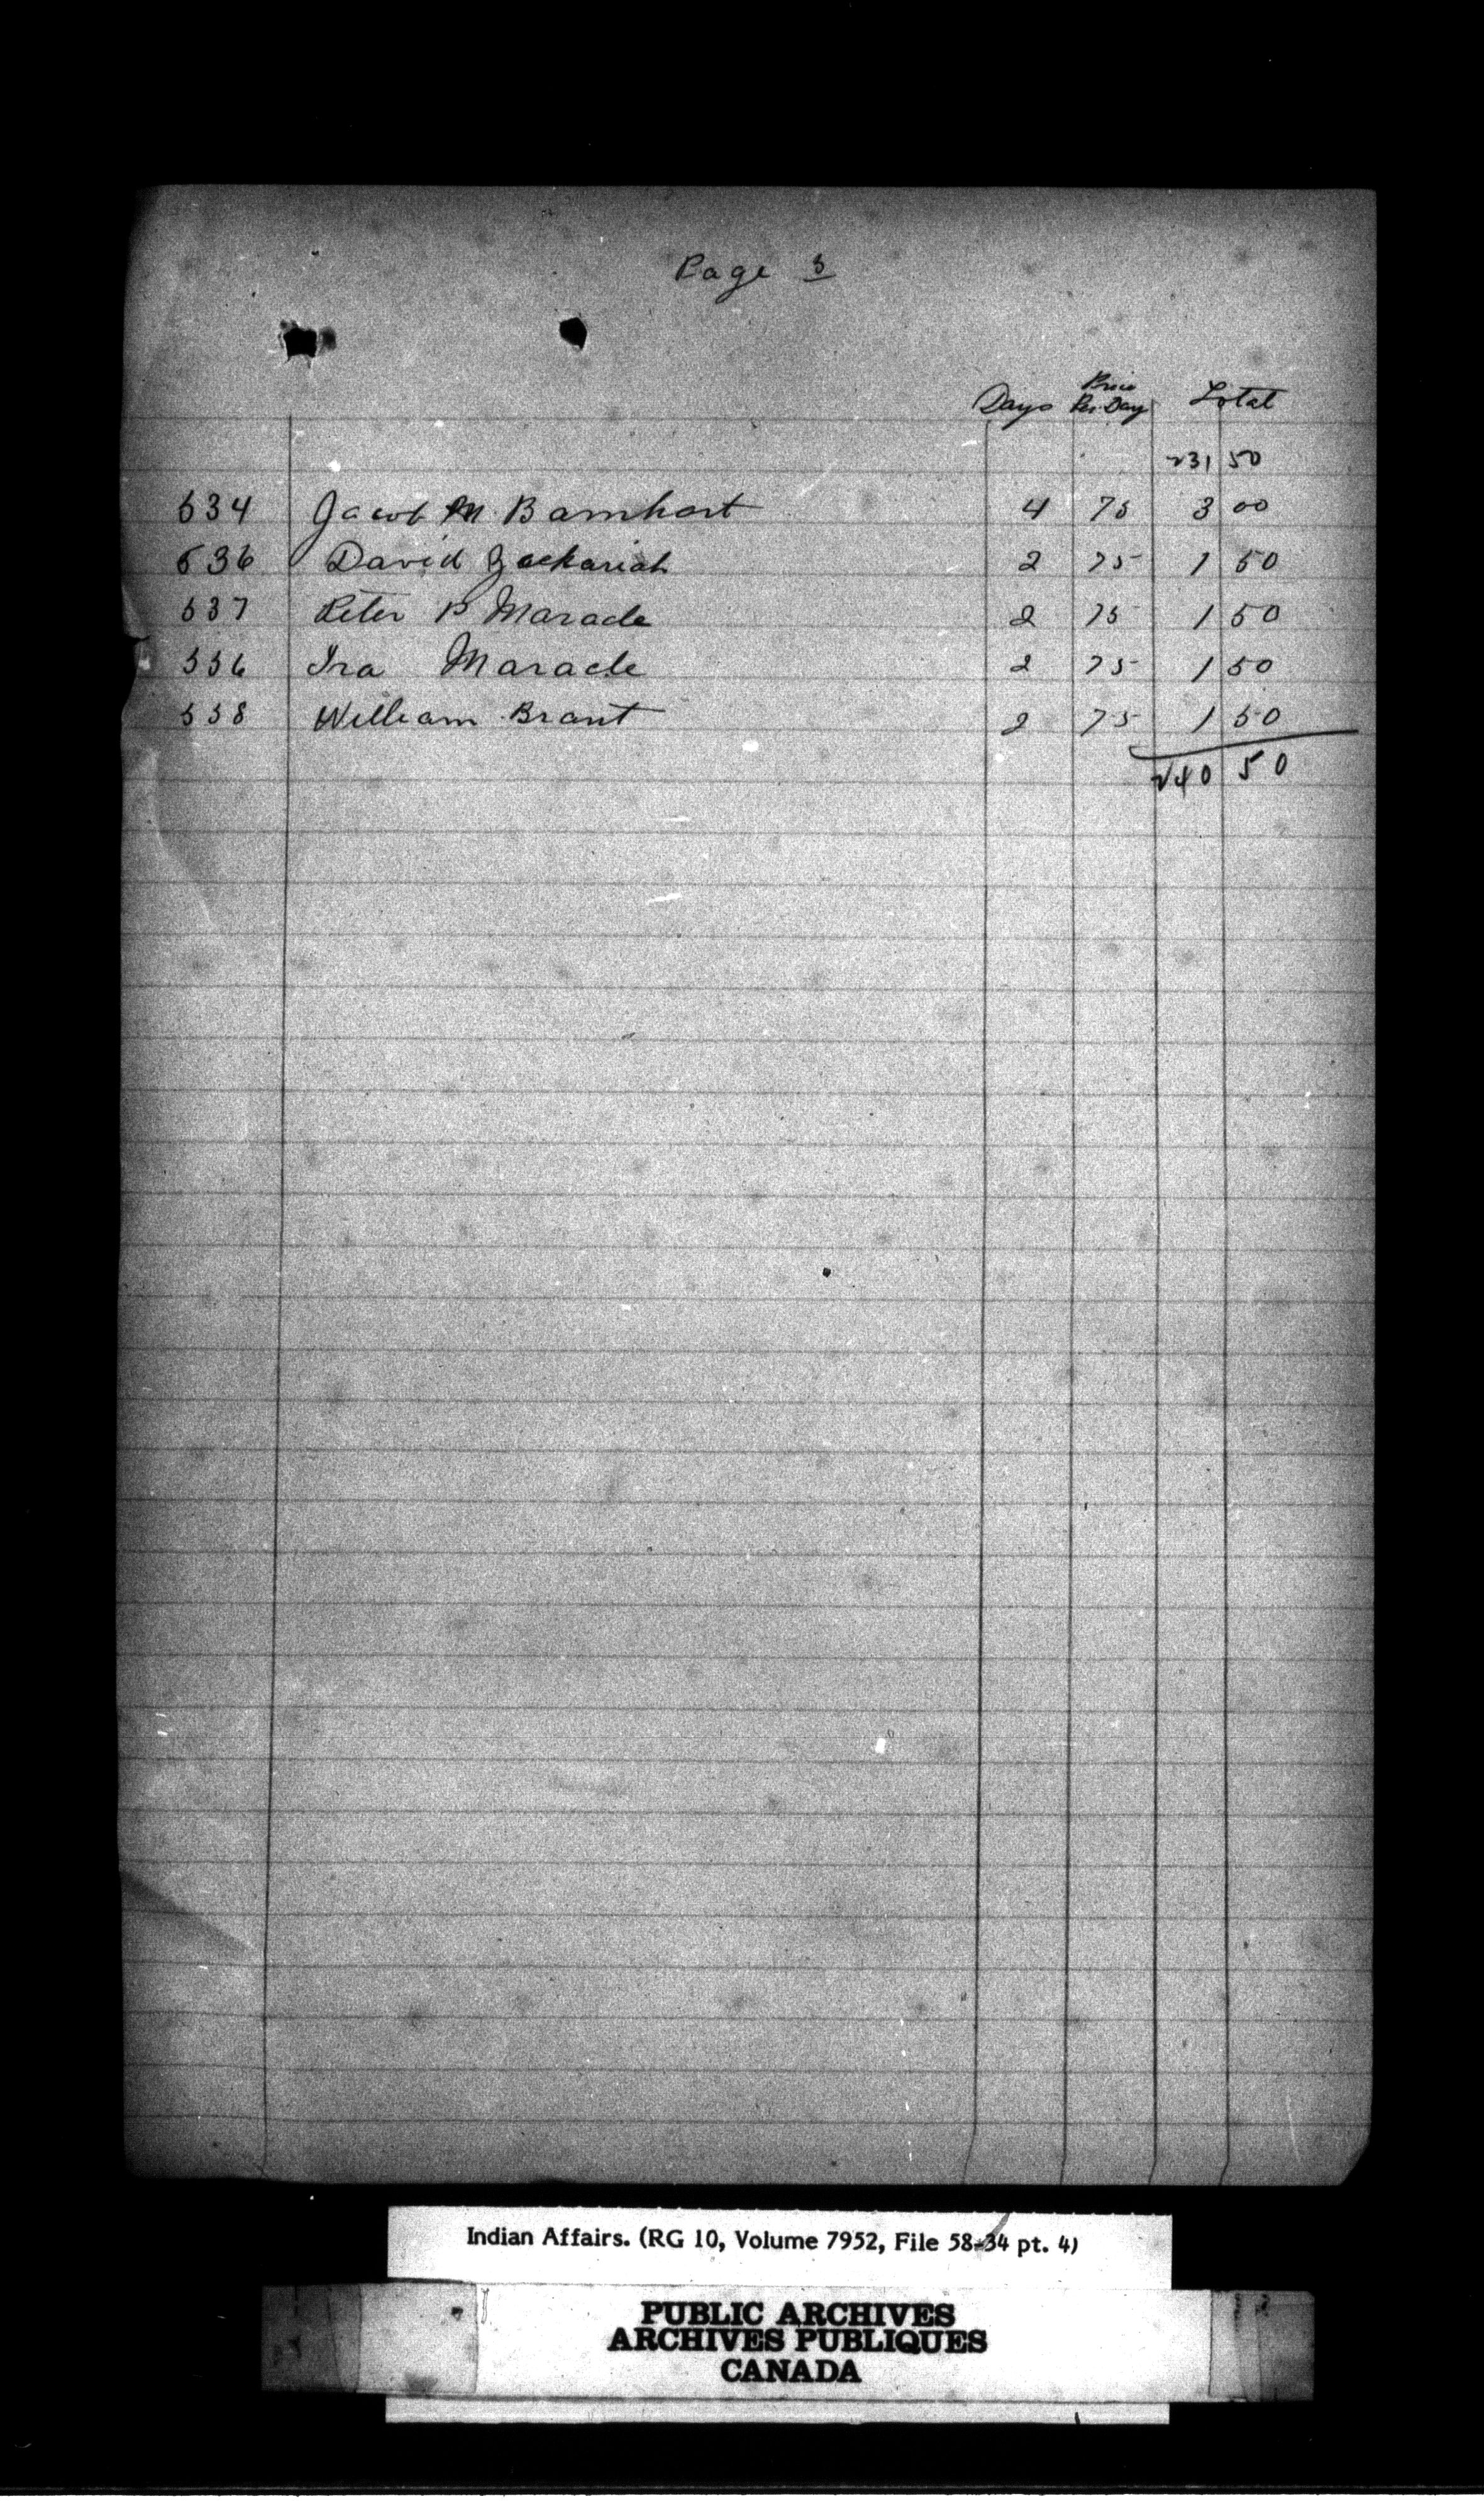 Page 3
Days Price Per Day Total
231 50
534 Jacob M. Barnhart 4 75 3 00
536 David Zachariah 2 75 1 50
537 Peter P Maracle 2 75 1 50
556 Ira Maracle 2 75 1 50
558 William Brant 2 75 1 50
240 50
Indian Affairs. (RG 10, Volume 7952, File 58-34 pt. 4)
PUBLIC ARCHIVES
ARCHIVES PUBLIQUES
CANADA